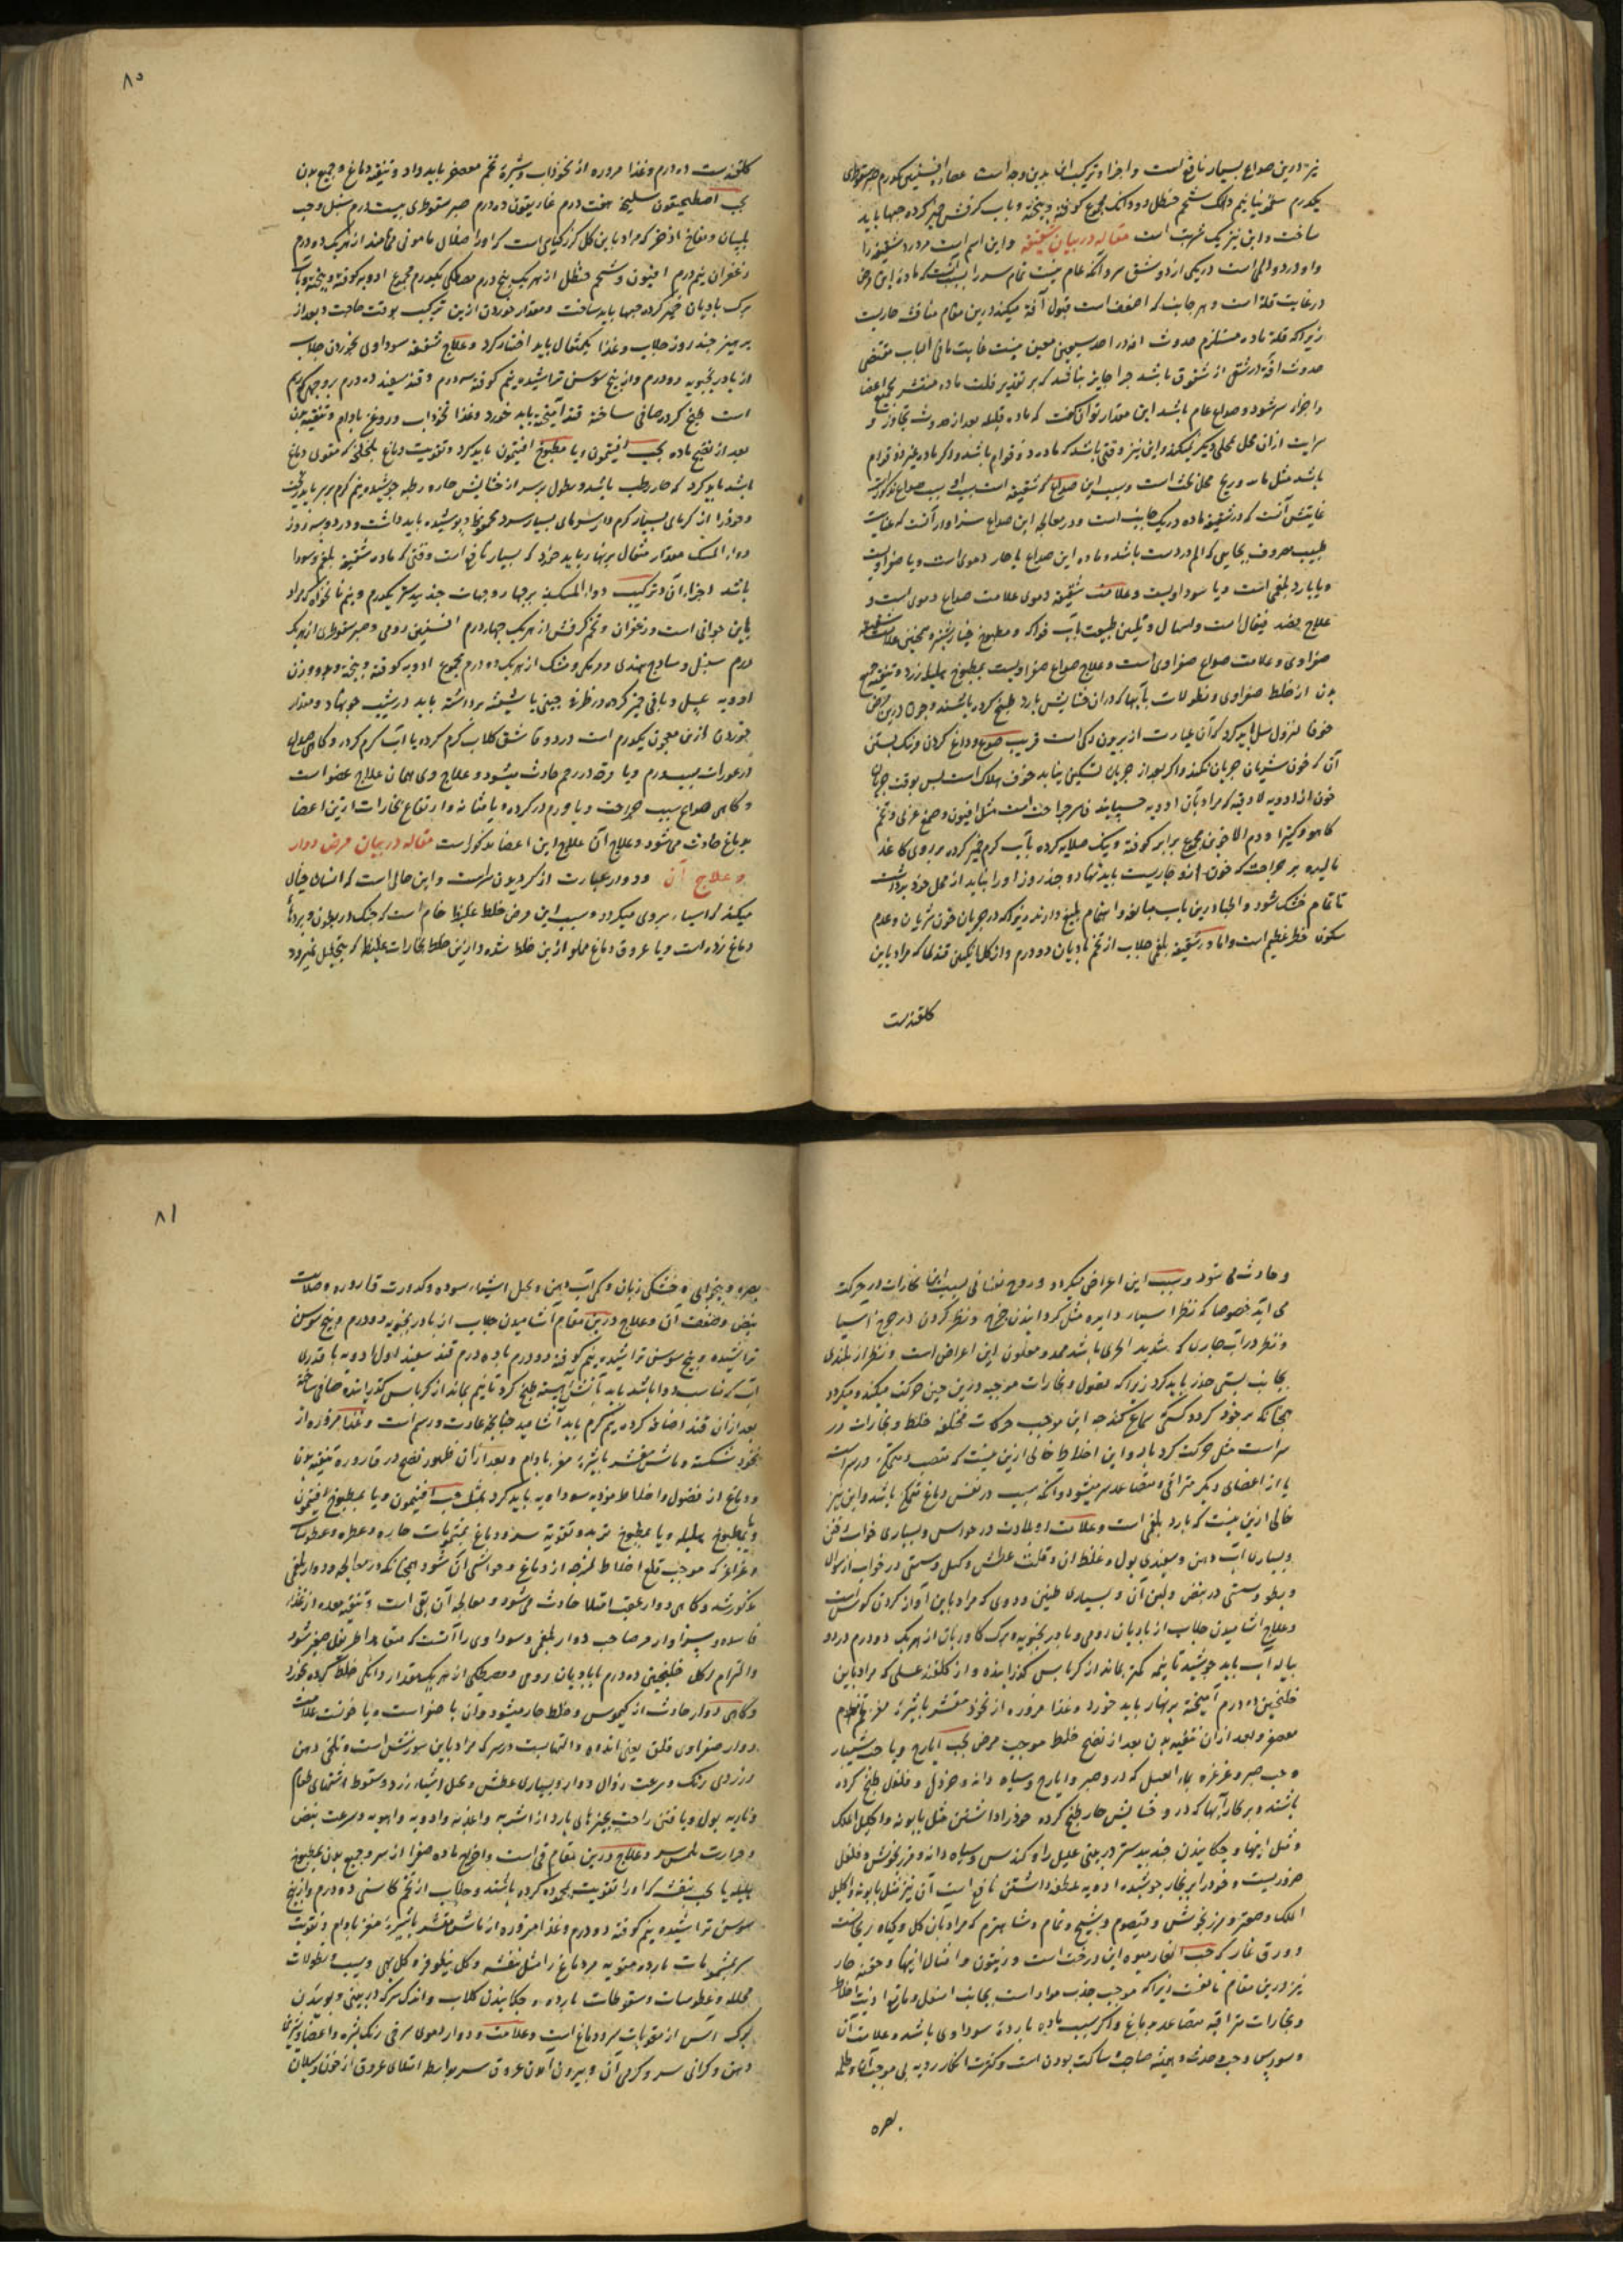 نیز درین صداع بسیار نافع است و اجزا و ترکیب آن بدین وجه است عصاره افسنتین یکدرم صبر سقوطری
یکدرم سقمونیا نیم دانگ شحم حنظل دو دانگ مجموع کوفته و بیخته و باب کرفس خمیر کرده حبها باید
ساخت و این نیز یک شربت است مقاله در بیان شقیقه و این اسم است مر درد شقیقه را
و او درد و المی است در یکی از دو شق سر و آنکه عام نیست تمام سر را سبب آنست که ماده این مرض
در غایت قلة است و هر جانب که اضعف است قبول آفة میکند درین مقام مناقشه جاریست
زیرا که قلة ماده مستلزم حدوث آفة در احد سمین معین نیست غایت ما فی الباب مقتضی
حدوث آفة در شقی از شقوق باشد چرا جایز نباشد که بر تقدیر قلت ماده منتشر بجمیع اعضا
و اجزاء سر شود و صداع عام باشد این مقدار توان گفت که ماده قلیله بعد از حدوث تجاوز و
سرایت از آن محل بمحلی دیگر نمیکند و این نیز وقتی باشد که ماده ردو قوام باشد و اگر ماده غیر ذو قوام
باشد مثل ماده ریح محل بحث است و سبب این صداع که شقیقه است سبب صداع مذکور است
غایتش آنست که در شقیقه ماده در یک جانب است و در معالجه این صداع سزاوار آنست که عنایت
طبیب مصروف بجانبی که الم در دست باشد و ماده این صداع یا حار دموی است و یا صفراویست
و یا بارد بلغمی است و یا سوداویست و علامت شقیقه دموی علامت صداع دموی است و
علاج فصد قیفال است و اسهال و تلیین طبیعت بآب فواکه و مطبوخ خیارشنبر و همچنین علامت شقیقه
صفراوی و علامت صداع صفراوی است و علاج صداع صفراویست بمطبوخ هلیله زرد و تنقیه جمیع
بدن از خلط صفراوی و نطولات بآبها که در آن حشایش بارد طبخ کرده باشند و چون درین مرض
خوفا لنزول سل باید کرد که آن عبارت از بریدن رگی است قریب صدغ و داغ کردن و نیک بستن
آن که خون شریان جریان نکند و اگر بعد از جریان تسکین نیابد خوف هلاک است پس بوقت جریان
خون از ادویه لازقه که مراد بآن ادویه چسپاینده بر جراحت است مثل افیون و صمغ عربی و تخم
کاهو و کتیرا و دم الاخوین مجموع برابر کوفته و نیک صلایه کرده بآب گرم خمیر کرده بر روی کاغذ
مالیده بر جراحت که خون ازو جاریست باید نهاد و چند روز او را نباید از محل خود برداشت
تا تمام خشک شود و اطبا درین باب مبالغه و اهتمام بلیغ دارند زیرا که در جریان خون شریان و عدم
سکون خطر عظیم است و اما در شقیقه بلغمی جلاب از تخم بادیان دو درم و از گلانکبین قندی که مراد باین
گلقندست
۸۰
گلقندست ده درم و غذا مزوره از نخوداب و شیره تخم معصفر باید داد و تنقیه دماغ و جمیع بدن
بحب اصطمحیقون سلیخه هفت درم غاریقون ده درم صبر سقوطری بیست درم سنبل و حب
بلسان و فقاح اذخر که مراد باین گل گورگیاهی است که او را خلال مامونی می نامند از هر یک دو درم
زعفران نیم درم افیون و شحم حنظل از هر یک پنج درم مصطکی یکدرم مجموع ادویه کوفته و بیخته و بآب
برگ بادیان خمیر کرده حبها باید ساخت و مقدار خوردن ازین ترکیب بوقت حاجت و بعد از
پرهیز چند روز جلاب و غذا یکمثقال باید اختیار کرد و علاج شقیقه سوداوی بخوردن جلاب
از بادرنجبویه دو درم و از بیخ سوسن تراشیده نیم کوفته سه درم و قند سفید ده درم بر وجهی که رسم
است طبخ کرده صافی ساخته قند آمیخته باید خورد و غذا نخوداب و روغن بادام و تنقیه بدن
بعد از نضج ماده بحب افتیمون و یا مطبوخ افتیمون باید کرد و تقویت دماغ بلخلخه که مقوی دماغ
باشد باید کرد که حار رطب باشد و نطول بر سر از حشایش حاره رطبه جوشیده نیم گرم بر سر باید ریخت
و خود را از گرمای بسیار گرم و از سرمای بسیار سرد محفوظ و پوشیده باید داشت و در دو سه روز
دواء المسک مقدار مثقال بر نهار باید خورد که بسیار نافع است وقتی که ماده شقیقه بلغم و سودا
باشد و اجزاء آن و ترکیب دواء المسک بر چهار وجهات جندبیدستر یکدرم و نیم نانخواه که مراد
باین جوانی است و زعفران و تخم کرفس از هر یک چهار درم افسنتین رومی و صبر سقوطری از هر یک
درم سنبل و ساذج هندی و مر مکی و مشک از هر یک ده درم مجموع ادویه کوفته و بیخته و بدو وزن
ادویه عسل و باقی خمیر کرده در ظرف چینی یا شیشه برداشته باید در شیب جو نهاد و مقدار
خوردن ازین معجون یکدرم است در دو قاشق گلاب گرم کرده یا آب گرم کرده و گاهی صداع
در عورات بسبب ورم و یا قرحه در رحم حادث میشود و علاج وی همان علاج عضو است
و گاهی صداع بسبب جراحت و یا ورم در گرده و یا مثانه و ارتفاع بخارات ازین اعضا
بدماغ حادث می شود و علاج آن علاج این اعضا مذکور است مقاله در بیان مرض دوار
و علاج آن و دوار عبارت از گردیدن سرست و این حالی است که انسان خیال
میکند که اشیاء بروی میگردد و سبب این مرض خلط غلیظ خام است که چنک در بطون و بردها
دماغ زده است و یا عروق دماغ مملو ازین خلط شده و ازین خلط بخارات غلیظه که بتحلیل نمیرود
و حادث می شود و سبب این اعراض میگردد و روح نفسانی بسبب این بخارات در حرکت
می آید خصوصا که نظر بسیار دایره مثل گردانیدن چرخ و نظر کردن در چرخ آسیا
و نظر در آب جاری که شدید الجری باشد ممد و معاون این اعراض است و نظر از بلندی
بجانب پستی حذر باید کرد زیرا که فضول و بخارات موجبه درین حین حرکت میکند و میگردد
همچنانکه بر خود گردد کسی سماع کند چه این موجب حرکات مختلفه خلط و بخارات در
سر است مثل حرکت گردباد و این اخلاط خالی ازین نیست که منصب و متمکن در سر است
یا از اعضای دیگر متراقی و متصاعد بسر میشود و آنکه سبب در نفس دماغ متمکن باشد و این نیز
خالی ازین نیست که بارد بلغمی است و علامت او بلادت در حواس و بسیاری خواب خفتن
و بسیاری آب دهن و سفیدی بول و غلظ آن و قلت عطش و کسل و سستی در جواب از سوال
و بطو و سستی در نبض و لین آن و بسیاری طنین و دوی که مراد باین آواز کردن گوش است
و علاج آشامیدن جلاب از بادیان رومی و بادرنجبویه و برگ گاوزبان از هر یک دو درم در دو
پیاله آب باید جوشید تا نیمه کمتر بماند از کرباس گذرانیده و از گلقند عسلی که مراد باین
خلنجبین ده درم آمیخته بر نهار باید خورد و غذا مزوره از نخود مقشر با شیره مغز تخم
معصفر و بعد از آن تنقیه بدن بعد از نضج خلط موجب مرض بحب ایارج و یا حب شبیار
و حب صبر و غرغره بماء العسل که در و صبر و ایارج و سیاه دانه و خردل و فلفل طبخ کرده
باشند و بر بخار آبها که در و حشایش حار طبخ کرده خود را داشتن مثل بابونه و اکلیل الملک
و مثل اینها و چکانیدن جندبیدستر در بینی علیل را و کندس و سیاه دانه و مرزنجوش و فلفل
ضروریست و خود را بر بخار جوشیده ادویه ملطفه داشتن نافع است آن نیز مثل بابونه و اکلیل
الملک و صعتر و مرزنجوش و قیصوم و شیح و نمام و شاهسفرم که مراد بآن گل و گیاه ریحانست
و ورق غار که حب الغار میوه این درخت است و زیتون و امثال اینها و حقنه حار
نیز درین مقام نافعست زیرا که موجب جذب مواد است بجانب اسفل و مانع اذیت اخلاط
و بخارات متراقیه متصاعد بدماغ و اگر سبب ماده بارده سوداوی باشد و علامت آن
وسواس و حدیث و همیشه صاحب ساکت بودن است و کثرت افکار ردیه بی موجب آن و ظلمه
بصره
۸۱
بصره و بیخوابی و خشکی زبان و کمی آب دهن و تخیل اشیاء سوده و کدورت قاروره و صلابت
نبض و ضعف آن و علاج درین مقام آشامیدن جلاب از بادرنجبویه دو درم و بیخ سوسن
تراشیده و بیخ سوسن تراشیده نیم کوفته دو درم با ده درم قند سفید اول ادویه با قدری
آب که مناسب دوا باشد باید بآتش آهسته طبخ کرد تا نیم بماند از کرباس گذرانده صافی ساخته
بعد از آن قند اضافه کرده نیم گرم باید آشامید چنانچه عادت و رسم است و غذا مزوره از
نخود شکسته و ماش مقشر با شیره مغز بادام و بعد از آن ظهور نضج در قاروره تنقیه بدن
و دماغ از فضول و اخلاط موذیه سوداویه باید کرد بمثل حب افتیمون و یا بمطبوخ افتیمون
و یا بمطبوخ هلیله و یا بمطبوخ تربد و تقویه سر و دماغ بشمومات حاره و عطره و عطوسات
و غراغر که موجب قلع اخلاط لزجه از دماغ و حواشی آن شود همچنانکه در معالجه دوار بلغمی
مذکور شد و گاهی دوار عقب امتلا حادث می شود و معالجه آن قی است و تنقیه معده از غذاء
فاسده و سزاوار مر صاحب دوار بلغمی و سوداوی را آنست که متقاعد اطریفل صغیر شود
و التزام اکل خلنجبین ده درم با بادیان رومی و مصطکی از هر یک مقدار دانگی خلط کرده بخورد
و گاهی دوار حادث از کیموس و خلط حار میشود و آن یا صفرا است و یا خونست علامت
دوار صفراوی قلق یعنی اندوه و التهابست در سر که مراد باین سوزش است و تلخی دهن
و زردی رنگ و سرعت زوال دوار و بسیاری عطش و تخیل اشیاء زرد و سقوط اشتهای طعام
و ناریه بول و یا فتن راحت بچیزهای بارد از اشربه و اغذیه و ادویه و اهویه و سرعت نبض
و حرارت ملمس و علاج درین مقام قی است و اخراج ماده صفرا از سر و جمیع بدن بمطبوخ
هلیله یا بحب بنفشه که او را تقویت بمحموده کرده باشند و جلاب از تخم کاسنی دو درم و از بیخ
سوسن تراشیده نیم کوفته دو درم و غذا مزوره از ماش مقشر با شیره مغز بادام و تقویت
سر بشمومات بارده مقویه مر دماغ را مثل بنفشه و گل نیلوفر و گل بهی و سیب و نطولات
محلله و عطوسات و سعوطات بارده و چکانیدن گلاب و اندک سرکه در بینی و بوئیدن
برگ آس از مقویات سر و دماغ است و علامت دوار دموی سرخی رنگ بشره و اعضا و شیرینی
دهن و گرانی سر و گرمی آن و بیرون آمدن عروق سر بواسطه امتلای عروق از خون و سیلان